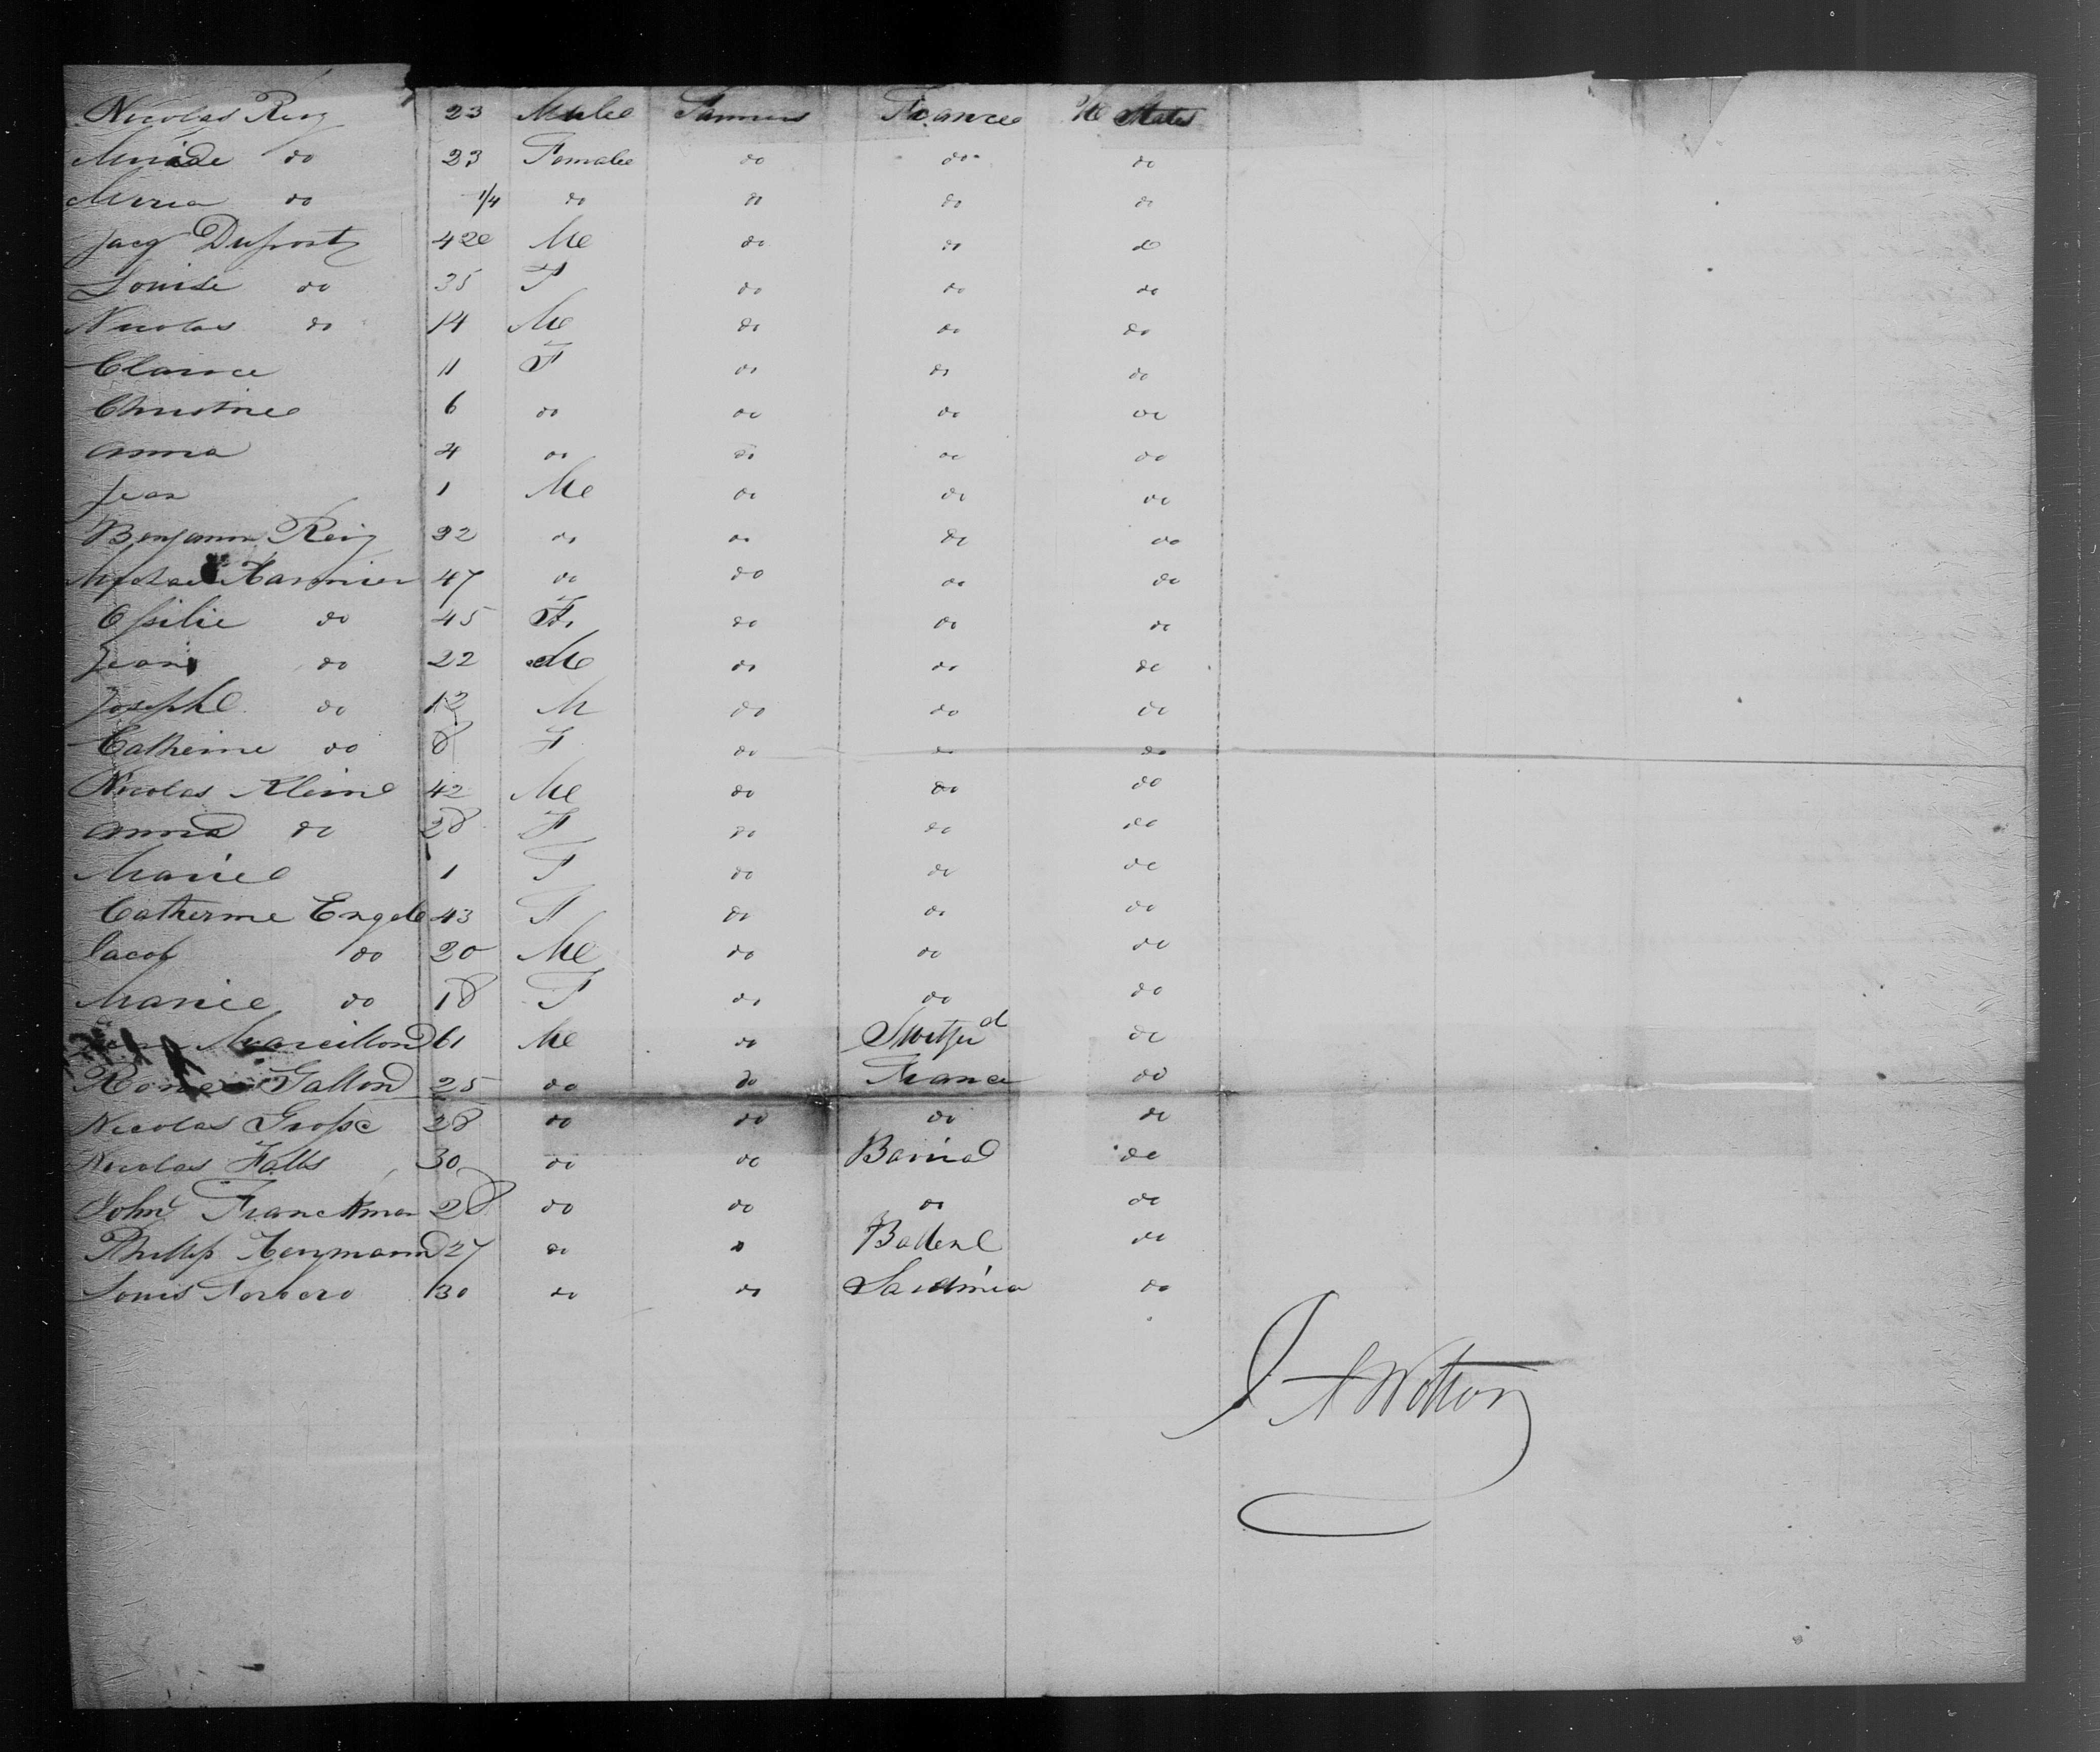 Nicolas Reig 23 Male Farmers France U States
do 23 Female do do do
Maria do 1/4 do do do do
Jacq Dupont 42 M do do do
Louise do 35 F do do do
Nicolas do 14 M do do do
Clarice 11 F do do do
Christine 6 do do do do
Anna 4 do do do do
Jean 1 M do do do
Benjamin Reig 32 do do do do
47 do do do do
do 45 F do do do
Jean do 22 M do do do
Joseph do 12 M do do do
Catherine do 8 F do do do
Nicolas Klein 42 M do do do
Anna do 28 F do do do
Marie 1 F do do do
Catherine Engel 43 F do do do
Jacob do 20 M do do do
Marie do 18 F do do do
Marcillon 61 M do Switzd do
Gallon 25 do do France do
Nicolas Grosse 28 do do do do
Nicolas Falls 30 do do Bavia do
John Franckman 28 do do do do
Phillip Herzmann 27 do do Baden do
Louis 30 do do Sardinia do
J A Wotton